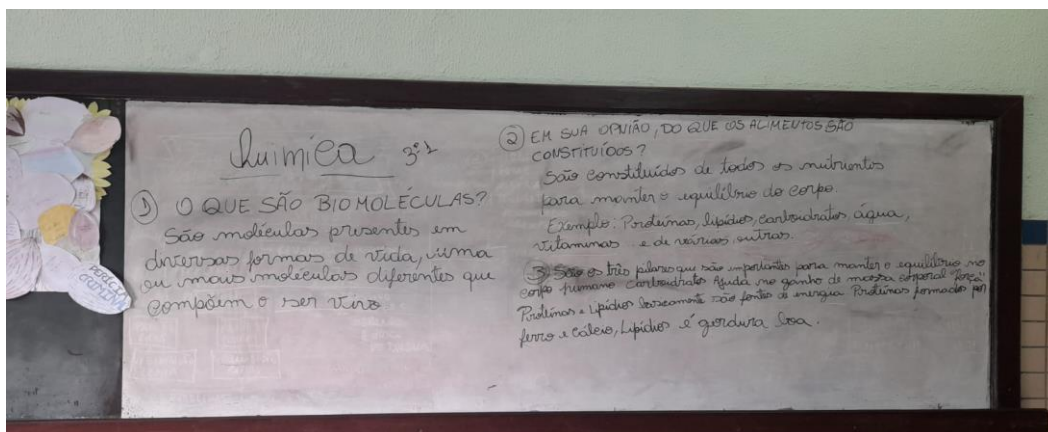 Química 3º 1
① O QUE SÃO BIOMOLÉCULAS?
São moléculas presentes em
diversas formas de vida, uma
ou mais moléculas diferentes que
compõem o ser vivo
② EM SUA OPNIÃO, DO QUE OS ALIMENTOS SÃO
CONSTITUÍDOS?
São constituídos de todos os nutrientes
para manter o equilíbrio do corpo.
Exemplo: Proteínas, lipídios, carboidratos, água,
vitaminas e de várias outras.
3) São os três pilares que são importantes para manter o equilíbrio no
corpo humano Carboidratos Ajuda no ganho de massa corporal "força"
Proteínas e Lipídios basicamente são fontes de energia Proteínas formados por
ferro e cálcio, Lipídios é gordura boa.